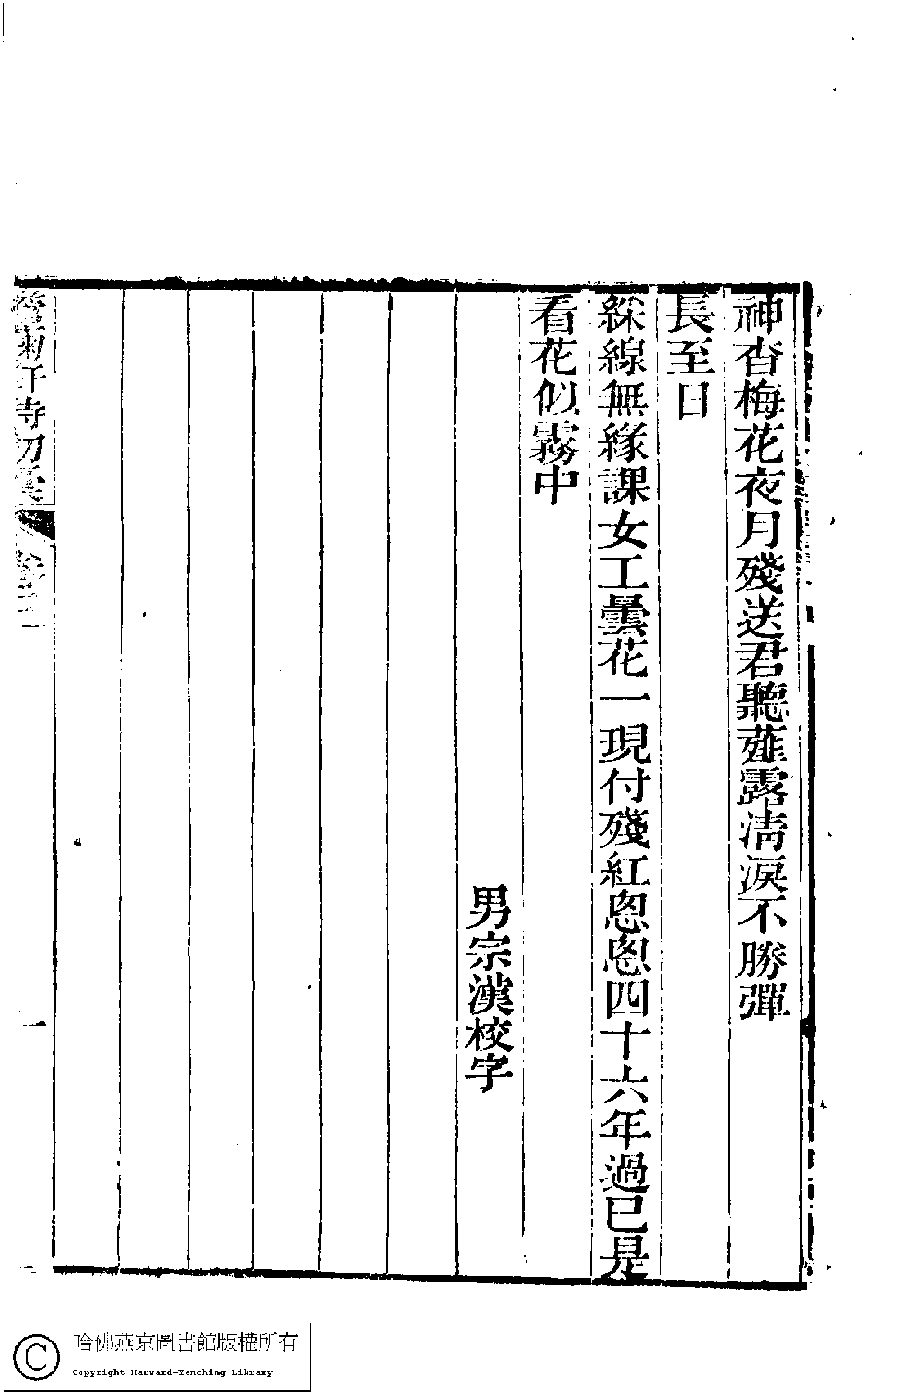 神杳梅花夜月殘送君聽薤露清淚不勝彈
長至日
綵線無緣課女工曇花一現付殘紅悤悤四十六年過已是
看花似霧中
男宗漢校字
哈佛燕京圖書館版權所有
Copyright Harvard-Yenching Library